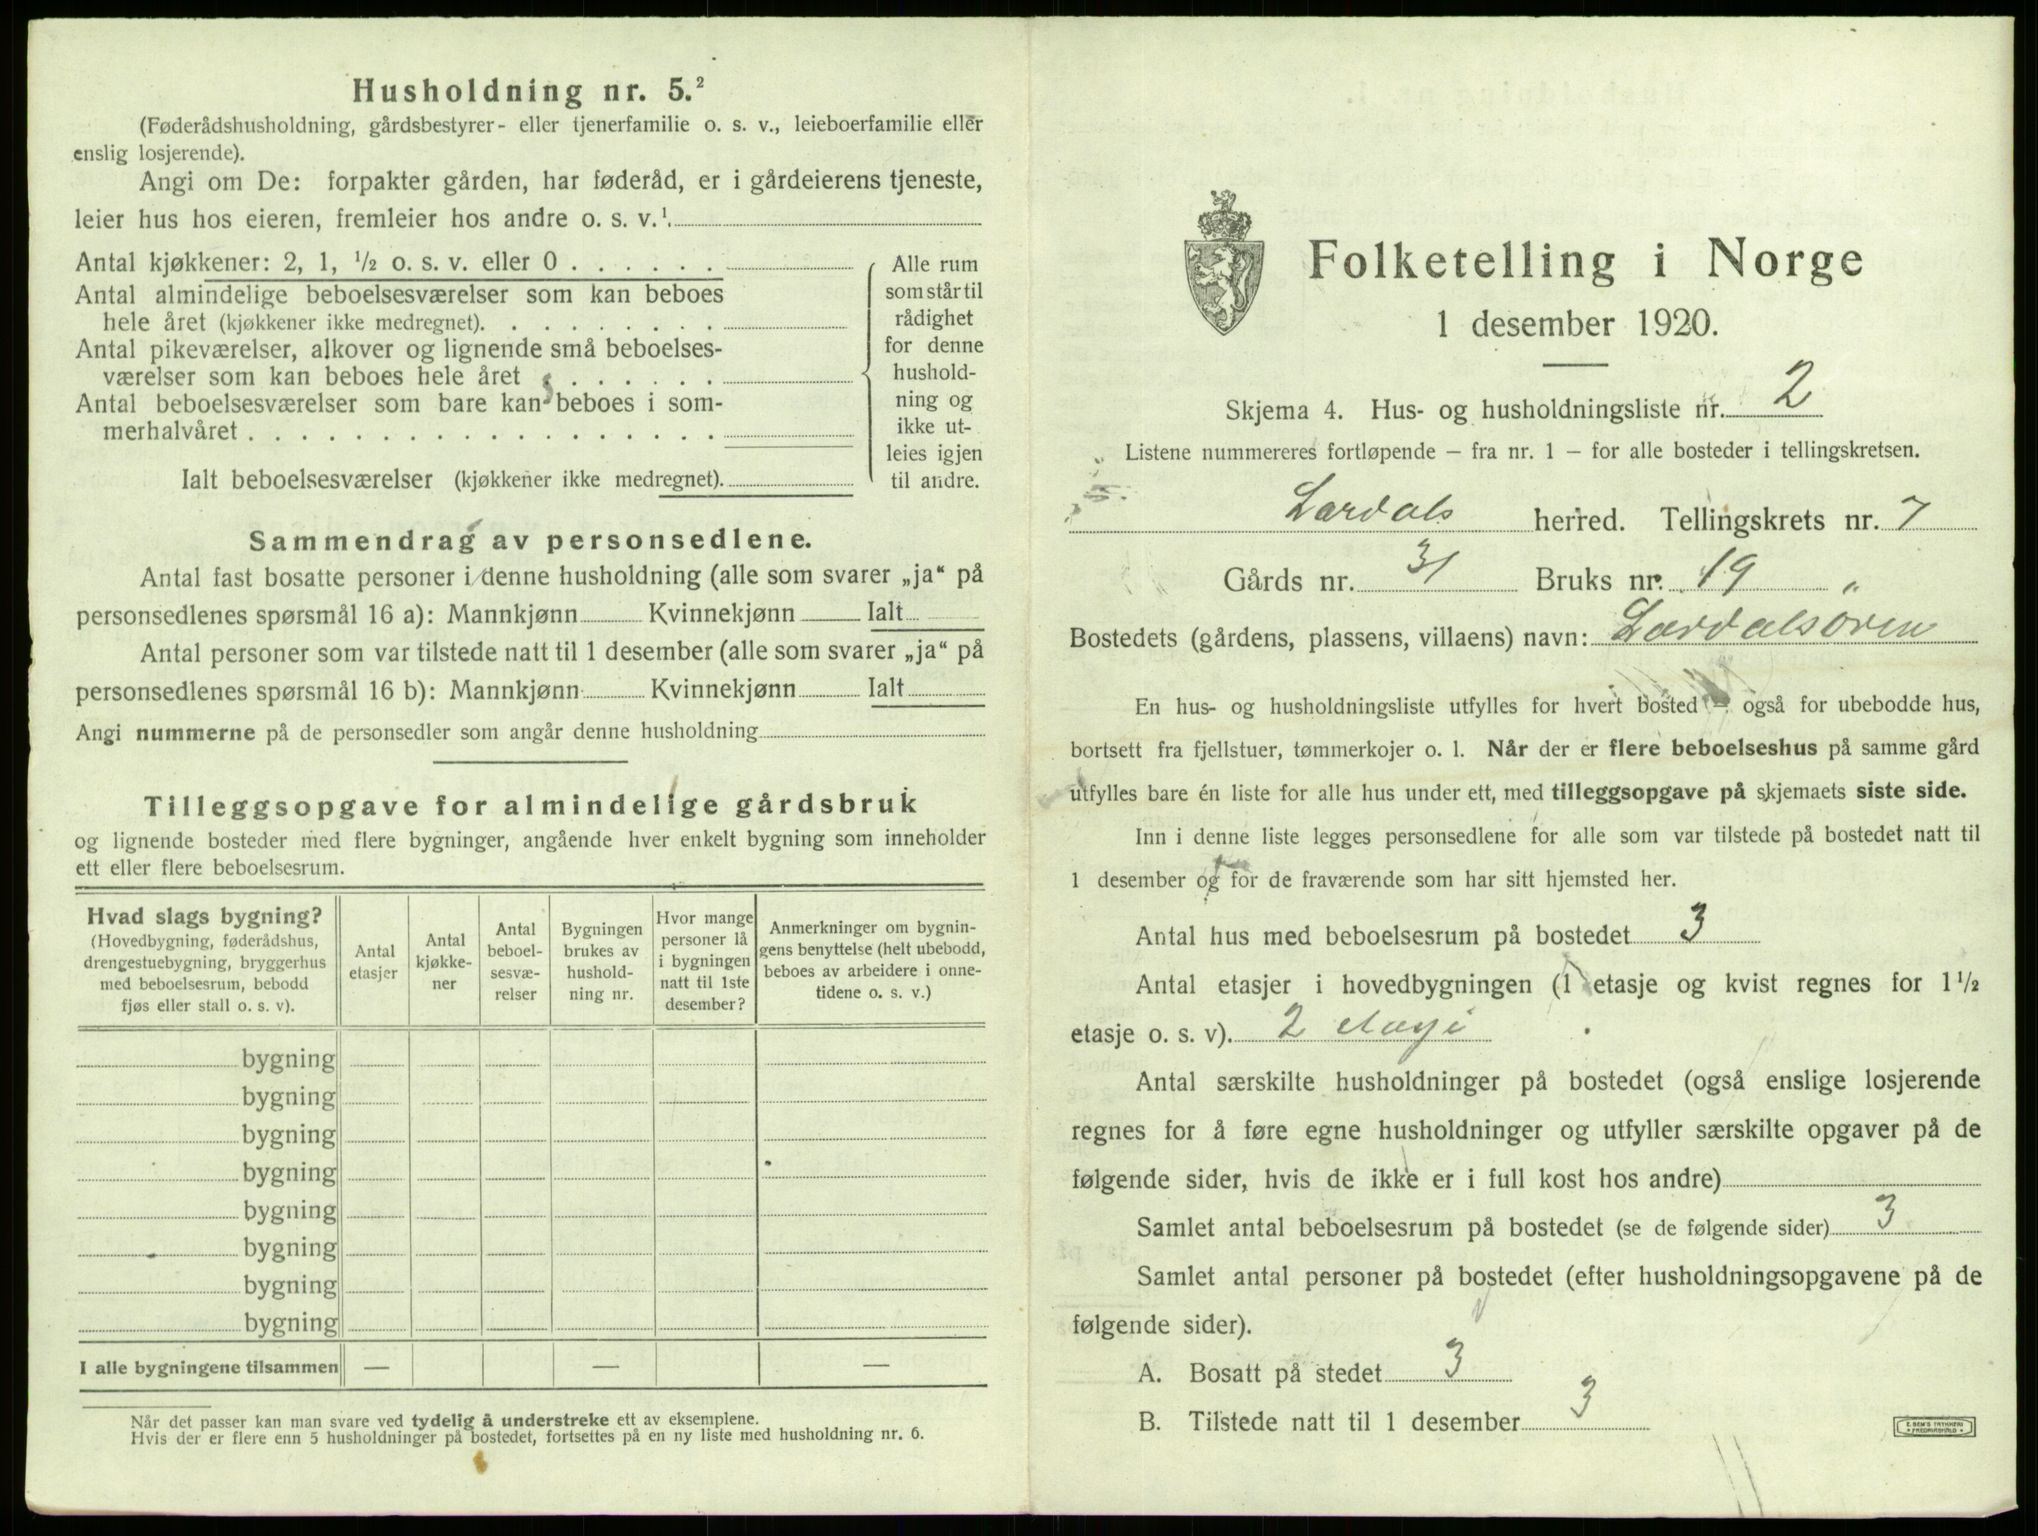 Husholdning nr. 5.²
(Føderådshusholdning, gårdsbestyrer- eller tjenerfamilie o. s. v., leieboerfamilie eller
enslig losjerende).
Angi om De: forpakter gården, har føderåd, er i gårdeierens tjeneste,
leier hus hos eieren, fremleier hos andre o. s. v.¹.
Antal kjøkkener: 2, 1, ½ o. s. v. eller 0 . . . . . .
Antal almindelige beboelsesværelser som kan beboes
hele året (kjøkkener ikke medregnet). . . . . . . . .
Antal pikeværelser, alkover og lignende små beboelses-
værelser som kan beboes hele året . . . . . . .
Antal beboelsesværelser som bare kan beboes i som-
merhalvåret . . . . . . . . . . . . . . . . . .
Ialt beboelsesværelser (kjøkkener ikke medregnet).
Alle rum
som står til
rådighet
for denne
hushold-
ning og
ikke ut-
leies igjen
til andre.
Sammendrag av personsedlene.
Antal fast bosatte personer i denne husholdning (alle som svarer „ja“ på
personsedlenes spørsmål 16 a): Mannkjønn Kvinnekjønn Ialt
Antal personer som var tilstede natt til 1 desember (alle som svarer „ja“ på
personsedlenes spørsmål 16 b): Mannkjønn Kvinnekjønn Ialt
Angi nummerne på de personsedler som angår denne husholdning
Tilleggsopgave for almindelige gårdsbruk
og lignende bosteder med flere bygninger, angående hver enkelt bygning som inneholder
ett eller flere beboelsesrum.
Hvad slags bygning?
(Hovedbygning, føderådshus,
drengestuebygning, bryggerhus
med beboelsesrum, bebodd
fjøs eller stall o. s. v).
Antal
etasjer
Antal
kjøkke-
ner
Antal
beboel-
sesvæ-
relser
Bygningen
brukes av
hushold-
ning nr.
Hvor mange
personer lå
i bygningen
natt til 1ste
desember?
Anmerkninger om bygnin-
gens benyttelse (helt ubebodd,
beboes av arbeidere i onne-
tidene o. s. v.)
bygning
bygning
bygning
bygning
bygning
bygning
bygning
bygning
I alle bygningene tilsammen — — —
Når det passer kan man svare ved tydelig å understreke ett av eksemplene.
Hvis der er flere enn 5 husholdninger på bostedet, fortsettes på en ny liste med husholdning nr. 6.
Folketelling i Norge
1 desember 1920.
Skjema 4. Hus- og husholdningsliste nr. 2
Listene nummereres fortløpende — fra nr. 1 — for alle bosteder i tellingskretsen.
Lærdals herred. Tellingskrets nr. 7
Gårds nr. 31 Bruks nr. 19
Bostedets (gårdens, plassens, villaens) navn: Lærdalsøren
En hus- og husholdningsliste utfylles for hvert bosted — også for ubebodde hus,
bortsett fra fjellstuer, tømmerkojer o. l. Når der er flere beboelseshus på samme gård
utfylles bare én liste for alle hus under ett, med tilleggsopgave på skjemaets siste side.
Inn i denne liste legges personsedlene for alle som var tilstede på bostedet natt til
1 desember og for de fraværende som har sitt hjemsted her.
Antal hus med beboelsesrum på bostedet 3
Antal etasjer i hovedbygningen (1 etasje og kvist regnes for 1½
etasje o. s. v). 2
Antal særskilte husholdninger på bostedet (også enslige losjerende
regnes for å føre egne husholdninger og utfyller særskilte opgaver på de
følgende sider, hvis de ikke er i full kost hos andre)
Samlet antal beboelsesrum på bostedet (se de følgende sider) 3
Samlet antal personer på bostedet (efter husholdningsopgavene på de
følgende sider).
A. Bosatt på stedet 3
B. Tilstede natt til 1 desember 3
E. SEM'S TRYKKERI
FREDRIKSHALD